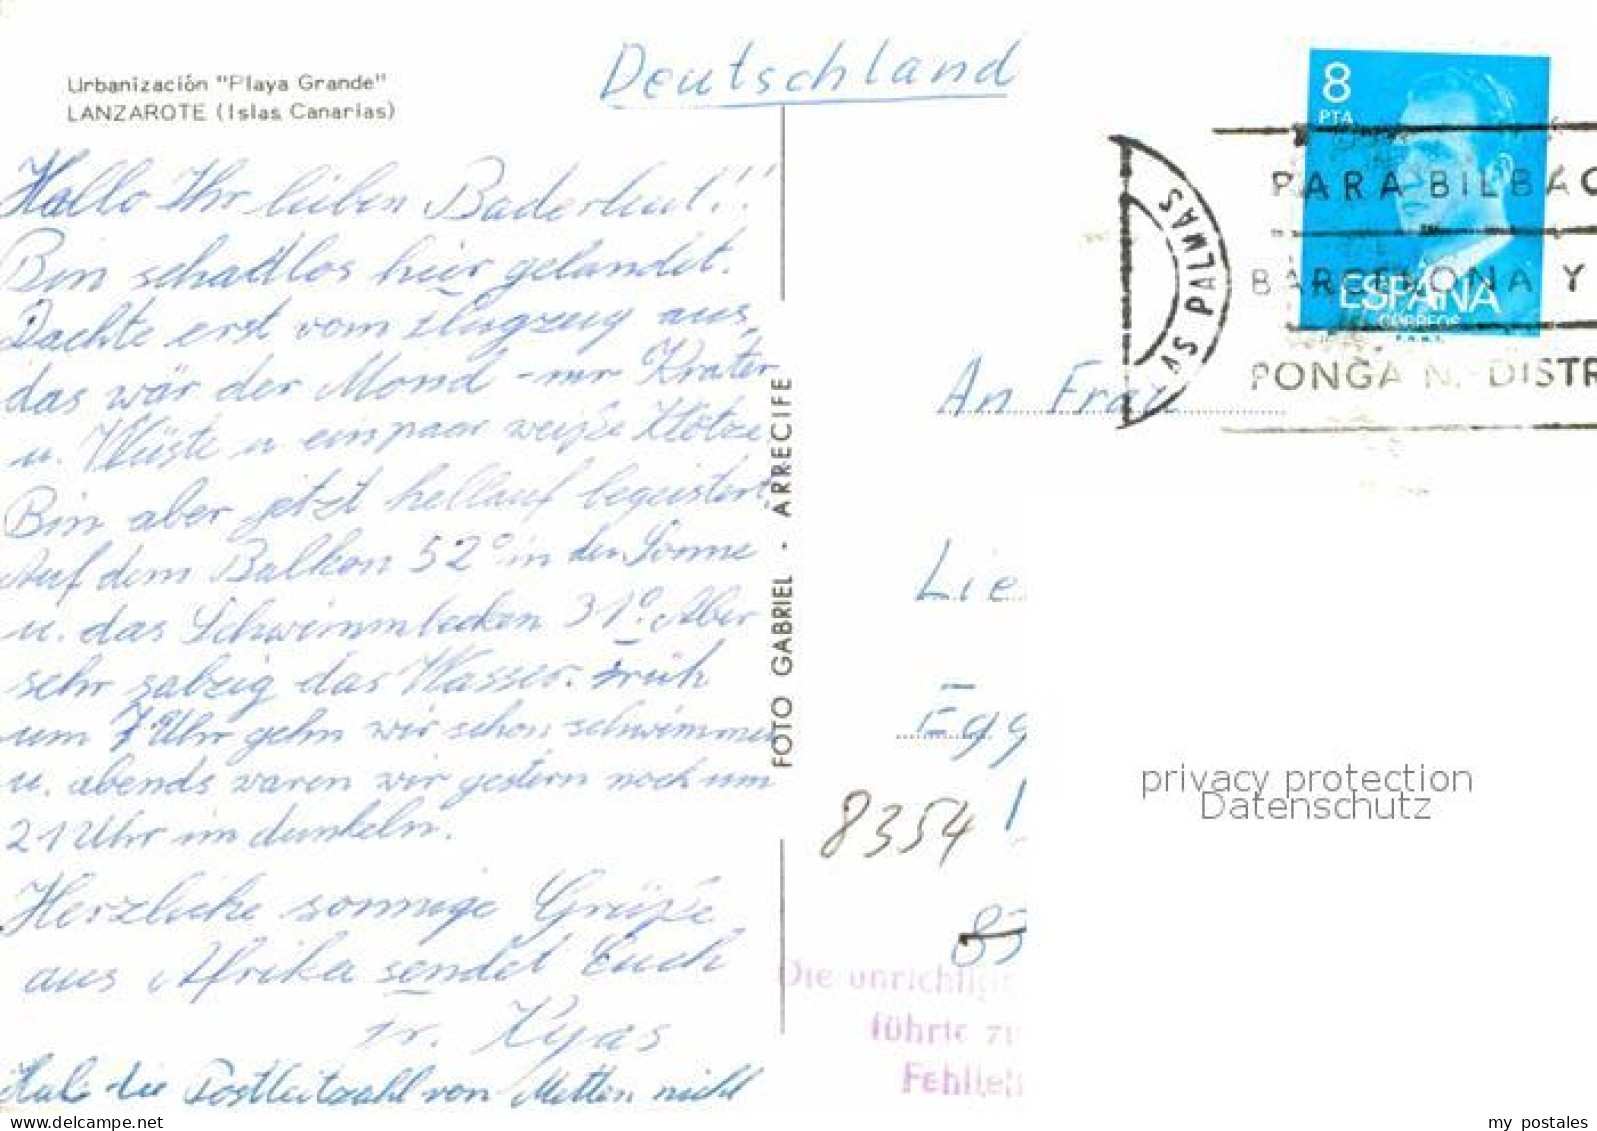 Urbanización "Playa Grande"
LANZAROTE (Islas Canarias)
Deutschland
Hallo Ihr lieben Baderleut!!
Bin schadlos hier gelandet.
Dachte erst vom Flugzeug aus,
das wär der Mond - nur Krater
u. Wüste u einpaar weiße Klötze
Bin aber jetzt hellauf begeistert.
Auf dem Balkon 52° in der Sonne
u. das Schwimmbecken 31°. Aber
sehr salzig das Wasser. Früh
um 7 Uhr gehn wir schon schwimmen
u. abends waren wir gestern noch um
21 Uhr im dunkeln.
Herzliche sonnige Grüße
aus Afrika sendet Euch
Fr. Kyas
Hab die Postleitzahl von Metten nicht
FOTO GABRIEL - ARRECIFE
8
PTA
ESPAÑA
CORREOS
F.N.M.T.
LAS PALMAS
PARA BILBAO
BARCELONA Y
PONGA N. DISTR
An Frau
Lie
Egg
8354
83
Die unrichtige
führte zu
Fehllei
privacy protection
Datenschutz
my postales